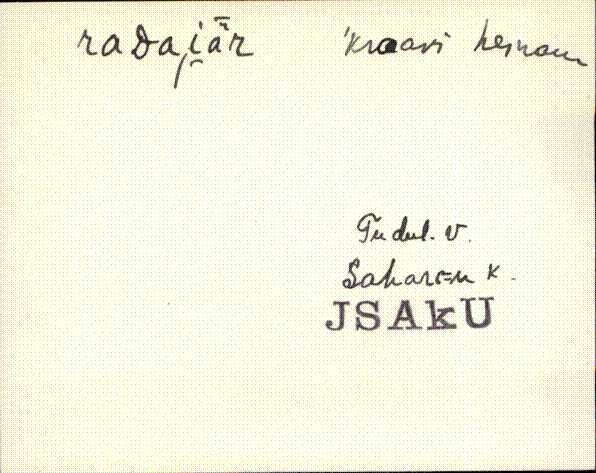 raDai̮är̄ 'kraavi heinam
Tudul. v.
Saharen k.
JSAkU